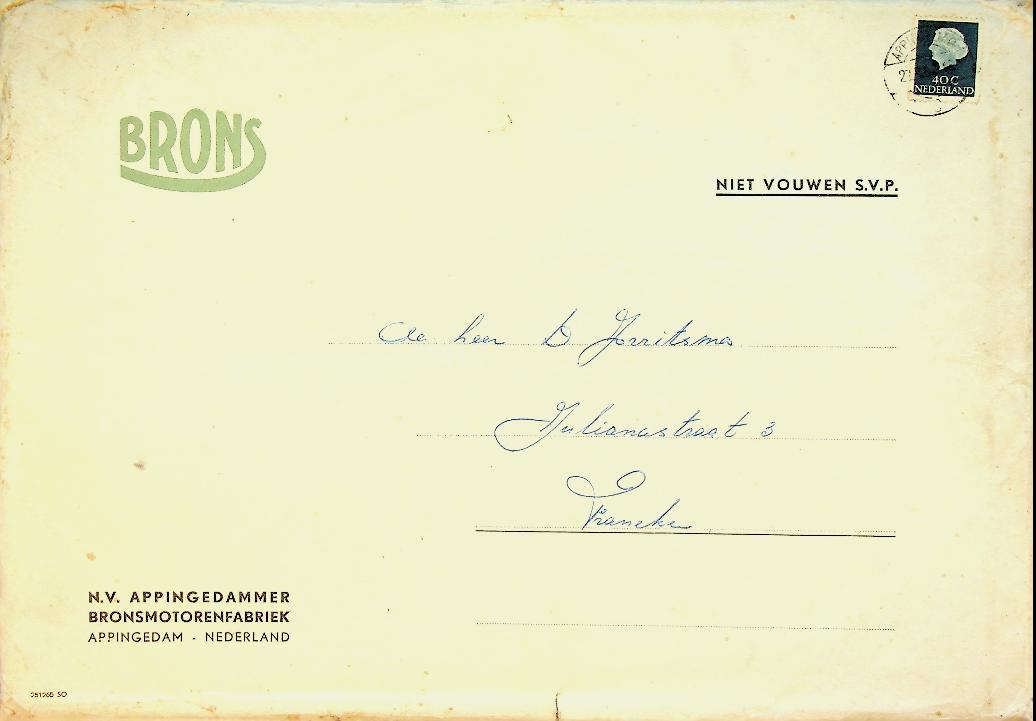 BRONS
40 C
NEDERLAND
NIET VOUWEN S.V.P.
de heer D Jorritsma
Julianastraat 3
Franeker
N.V. APPINGEDAMMER
BRONSMOTORENFABRIEK
APPINGEDAM - NEDERLAND
251265 SO